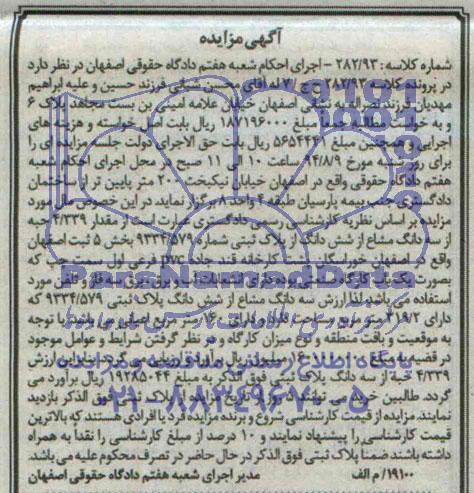 آگهی مزایده
شماره کلاسه: ۲۸۲/۹۳ - اجرای احکام شعبه هفتم دادگاه حقوقی اصفهان در نظر دارد
در پرونده کلاسه ۲۸۲/۹۳ ح ج/۷ له آقای محسن فرزند حسین و علیه ابراهیم
مهدیان فرزند نصراله به نشانی اصفهان خیابان علامه امینی بن بست مجاهد پلاک ۶
و به خواسته مطالبه مبلغ ۱۸۷۱۹۶۰۰۰ ریال بابت اصل خواسته و هزینه های
اجرایی و همچنین مبلغ ۵۶۵۴۴۴۱ ریال بابت حق الاجرای دولت جلسه مزایده ای را
برای روز شنبه مورخ ۹۴/۸/۹ ساعت ۱۰ الی ۱۱ صبح در محل اجرای احکام شعبه
هفتم دادگاه حقوقی واقع در اصفهان خیابان نیکبخت ۲۰۰ متر پایین تر از ساختمان
دادگستری جنب بیمه پارسیان طبقه ۴ واحد ۸ برگزار نماید. در این خصوص مال مورد
مزایده بر اساس نظریه کارشناسی رسمی دادگستری عبارت است از مقدار ۴/۳۳۹ حبه
از سه دانگ مشاع از شش دانگ از پلاک ثبتی شماره ۹۳۳۴/۵۷۹ بخش ۵ ثبت اصفهان
واقع در اصفهان خوراسگان کارخانه قند جاده pvc فرعی اول سمت چپ که
بصورت یک باب کارگاه صنعتی بوده دارای انشعابات آب و برق، برق سه فاز و تلفن مورد
استفاده می باشد لذا ارزش سه دانگ مشاع از شش دانگ پلاک ثبتی ۹۳۳۴/۵۷۹ که
دارای ۳۱۹/۲ متر مربع مساحت دارد و دارای ۱۶۰ متر مربع اعیانی می باشد با توجه
به موقعیت و بافت منطقه و نوع میزان کارگاه و در نظر گرفتن شرایط و عوامل موجود
در قضیه به مبلغ میلیون ریال برآورد و ارزیابی می گردد بنابراین ارزش
۴/۳۳۹ حبه از سه دانگ پلاک ثبتی فوق الذکر به مبلغ ۱۹۲۸۵۰۰۴۴ ریال برآورد می
گردد. طالبین خرید می توانند ۵ روز تا تاریخ مزایده از پلاک ثبتی فوق الذکر بازدید
نمایند. مزایده از قیمت کارشناسی شروع و برنده مزایده فرد یا افرادی هستند که بالاترین
قیمت کارشناسی را پیشنهاد نمایند و ۱۰ درصد از مبلغ کارشناسی را نقدا به همراه
داشته باشند ضمنا پلاک ثبتی فوق الذکر در حال حاضر در تصرف محکوم علیه می باشد.
۱۹۱۰۰/ م الف مدیر اجرای شعبه هفتم دادگاه حقوقی اصفهان
ParsNamadData
پایگاه اطلاع رسانی مناقصه و مزایده
۰۲۱-۸۸۳۴۹۶۷۰-۵